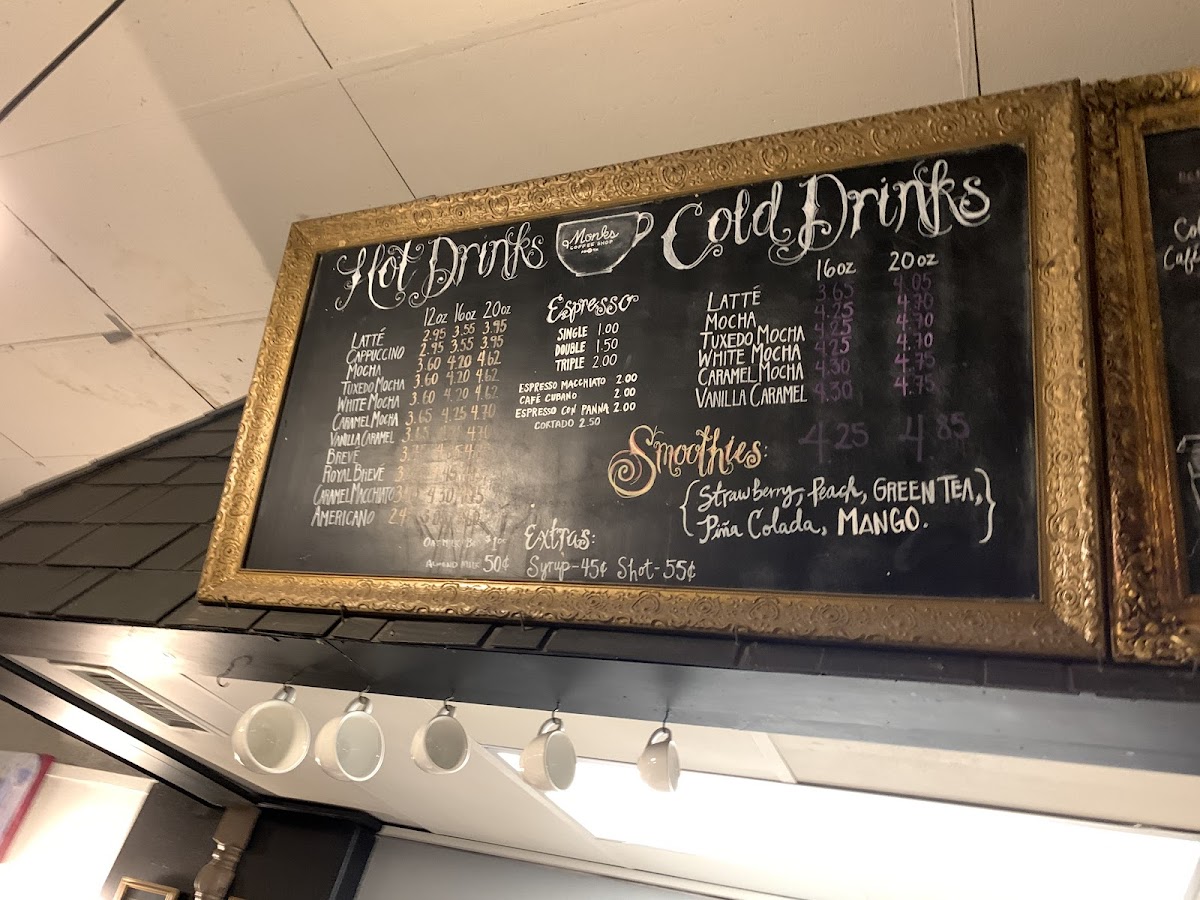 Hot Drinks
12oz 16oz 20oz
LATTÉ 2.95 3.55 3.95
CAPPUCCINO 2.95 3.55 3.95
MOCHA 3.60 4.20 4.62
TUXEDO MOCHA 3.60 4.20 4.62
WHITE MOCHA 3.60 4.20 4.62
CARAMEL MOCHA 3.65 4.25 4.70
VANILLA CARAMEL
BREVÉ
ROYAL BREVÉ
CARAMEL MACCHIATO
AMERICANO
50¢
Monks
COFFEE SHOP
Espresso
SINGLE 1.00
DOUBLE 1.50
TRIPLE 2.00
ESPRESSO MACCHIATO 2.00
CAFÉ CUBANO 2.00
ESPRESSO CON PANNA 2.00
CORTADO 2.50
Extras:
Syrup-45¢ Shot-55¢
Cold Drinks
16oz 20oz
LATTÉ 3.65 4.05
MOCHA 4.25 4.70
TUXEDO MOCHA 4.25 4.70
WHITE MOCHA 4.25 4.70
CARAMEL MOCHA 4.30 4.75
VANILLA CARAMEL 4.30 4.75
Smoothies: 4.25 4.85
{Strawberry, Peach, GREEN TEA,
Piña Colada, MANGO.}